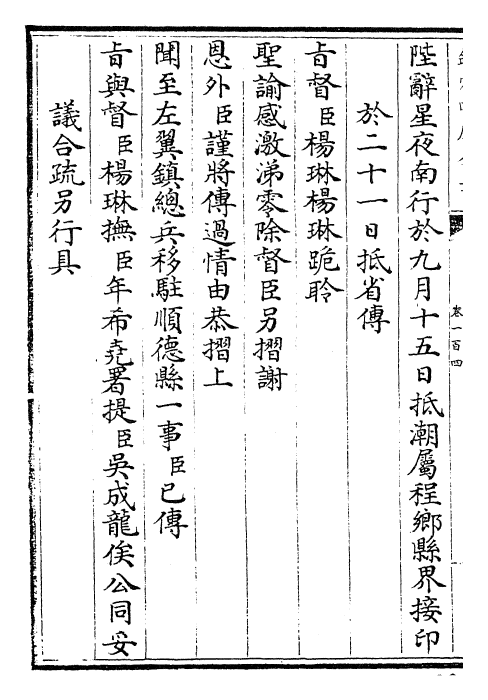 陛辭星夜南行於九月十五日抵潮屬程鄉縣界接印
於二十一日抵省傳
旨督臣楊琳楊琳跪聆
聖諭感激涕零除督臣另摺謝
恩外臣謹將傳過情由恭摺上
聞至左翼鎮總兵移駐順德縣一事臣已傳
旨與督臣楊琳撫臣年希堯署提臣吳成龍俟公同妥
議合疏另行具
卷一百四